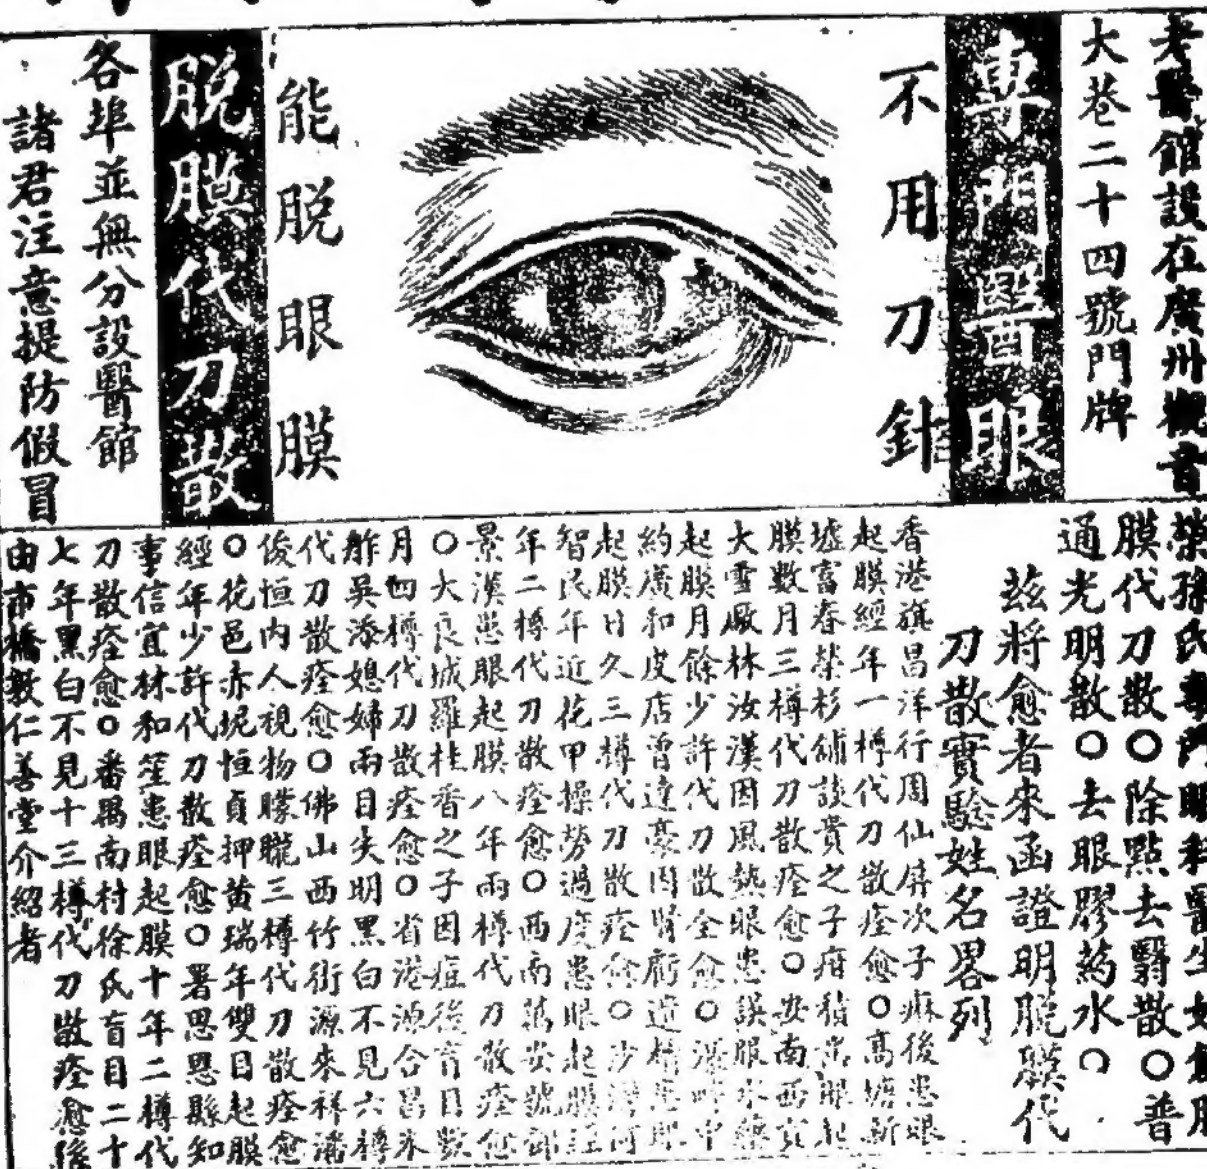 老醫館設在廣州觀音
大巷二十四號門牌
專門醫眼
不用刀針
能脫眼膜
脫膜代刀散
各埠並無分設醫館
諸君注意提防假冒
孫氏專門眼科醫生
膜代刀散〇除點去翳散〇普
通光明散〇去眼膠葯水〇
茲將愈者來函證明脫膜代
刀散實驗姓名畧列
香港旗昌洋行周仙屏次子痲後患眼
起膜經年一樽代刀散痊愈〇高塘新
墟富春榮杉舖談貴之子疳積
膜數月三樽代刀散痊愈〇安南西貢
大雪厰林汝漢因風熱眼患誤服
起膜月餘少許代刀散全愈〇
約廣和皮店曾達豪因腎
起膜日久三樽代刀散痊〇沙灣何
智民年近花甲操勞過度患眼起膜
年二樽代刀散痊愈〇西南萬安號
景漢患眼起膜八年兩樽代刀散痊愈
〇大良城羅桂香之子因痘後盲目數
月四樽代刀散痊愈〇省港源合昌米
舴吳添媳婦兩目失明黑白不見六樽
代刀散痊愈〇佛山西竹街源來祥潘
俊恒內人視物矇矓三樽代刀散痊愈
〇花邑赤坭恒貞押黃瑞年雙目起膜
經年少許代刀散痊愈〇署思恩縣知
事信宜林和笙患眼起膜十年二樽代
刀散痊愈〇番禺南村徐氏盲目二十
七年黑白不見十三樽代刀散痊愈後
由市橋敦仁善堂介紹者